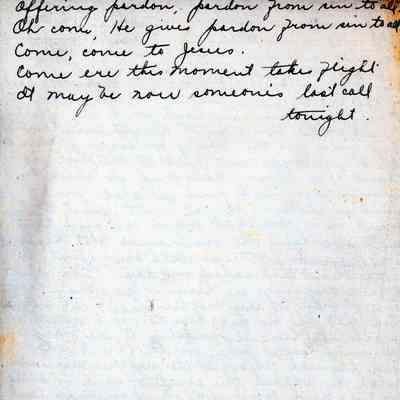 Offering pardon, pardon from sin to all,
Oh come, He gives pardon from sin to all
Come, come to Jesus.
Come ere this moment take flight
It may be now someone's last call
tonight.